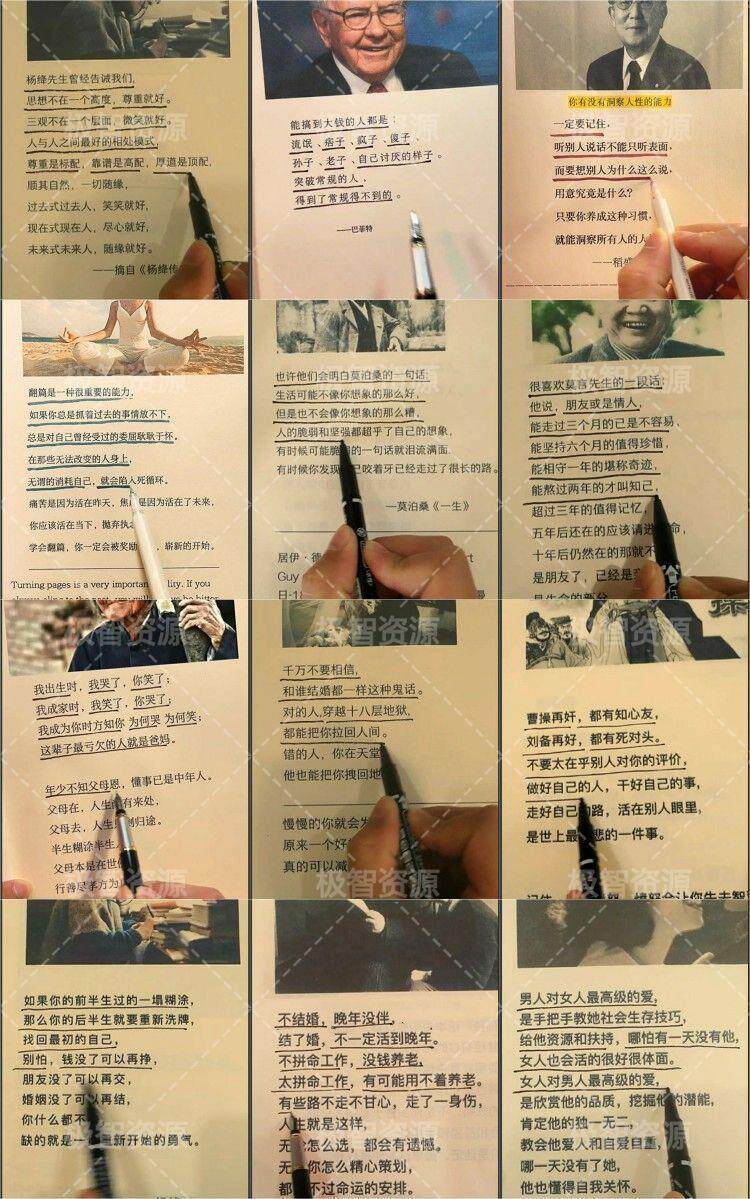 杨绛先生曾经告诫我们,
思想不在一个高度，尊重就好。
三观不在一个层面，微笑就好。
人与人之间最好的相处模式，
尊重是标配，靠谱是高配，厚道是顶配，
顺其自然，一切随缘，
过去式过去人，笑笑就好，
现在式现在人，尽心就好，
未来式未来人，随缘就好。
——摘自《杨绛传
能搞到大钱的人都是：
流氓、痞子、疯子、傻子、
孙子、老子、自己讨厌的样子。
突破常规的人，
得到了常规得不到的。
——巴菲特
你有没有洞察人性的能力
一定要记住，
听别人说话不能只听表面，
而要想别人为什么这么说，
用意究竟是什么?
只要你养成这种习惯，
就能洞察所有人的人
——稻
翻篇是一种很重要的能力，
如果你总是抓着过去的事情放不下，
总是对自己曾经受过的委屈耿耿于怀，
在那些无法改变的人身上，
无谓的消耗自己，就会陷入死循环。
痛苦是因为活在昨天，焦 是因为活在了未来，
你应该活在当下，抛弃执
学会翻篇，你一定会被奖励 崭新的开始。
Turning pages is a very important lity. If you
也许他们会明白莫泊桑的一句话:
生活可能不像你想象的那么好，
但是也不会像你想象的那么糟，
人的脆弱和坚强都超乎了自己的想象，
有时候可能脆 的一句话就泪流满面
有时候你发现 己咬着牙已经走过了很长的路。
—莫泊桑《一生》
居伊·德
Guy
日:18
很喜欢莫言先生的一段话：
他说，朋友或是情人，
能走过三个月的已是不容易，
能坚持六个月的值得珍惜，
能相守一年的堪称奇迹，
能熬过两年的才叫知己，
超过三年的值得记忆，
五年后还在的应该请进 命，
十年后仍然在的那就不
是朋友了，已经是
我出生时，我哭了，你笑了；
我成家时，我笑了，你哭了；
我成为你时方知你 为何哭 为何笑；
这辈子最亏欠的人就是爸妈。
年少不知父母恩，懂事已是中年人。
父母在，人生 有来处，
父母去，人生 剩归途。
半生糊涂半生
父母本是在世
行善尽孝方为
千万不要相信，
和谁结婚都一样这种鬼话。
对的人,穿越十八层地狱，
都能把你拉回人间。
错的人，你在天堂
他也能把你拽回地
慢慢的你就会发
原来一个好
真的可以减
曹操再奸，都有知心友，
刘备再好，都有死对头。
不要太在乎别人对你的评价，
做好自己的人，干好自己的事，
走好自己的路，活在别人眼里，
是世上最 悲的一件事。
如果你的前半生过的一塌糊涂，
那么你的后半生就要重新洗牌，
找回最初的自己，
别怕，钱没了可以再挣，
朋友没了可以再交，
婚姻没了可以再结，
你什么都不
缺的就是一 重新开始的勇气。
不结婚，晚年没伴，
结了婚，不一定活到晚年。
不拼命工作，没钱养老，
太拼命工作，有可能用不着养老。
有些路不走不甘心，走了一身伤，
人生就是这样，
无 怎么选，都会有遗憾。
无 你怎么精心策划，
都 不过命运的安排。
男人对女人最高级的爱，
是手把手教她社会生存技巧，
给他资源和扶持，哪怕有一天没有他，
女人也会活的很好很体面。
女人对男人最高级的爱，
是欣赏他的品质，挖掘他的潜能，
肯定他的独一无二，
教会他爱人和自爱自重，
哪一天没有了她，
他也懂得自我关怀。
极智资源